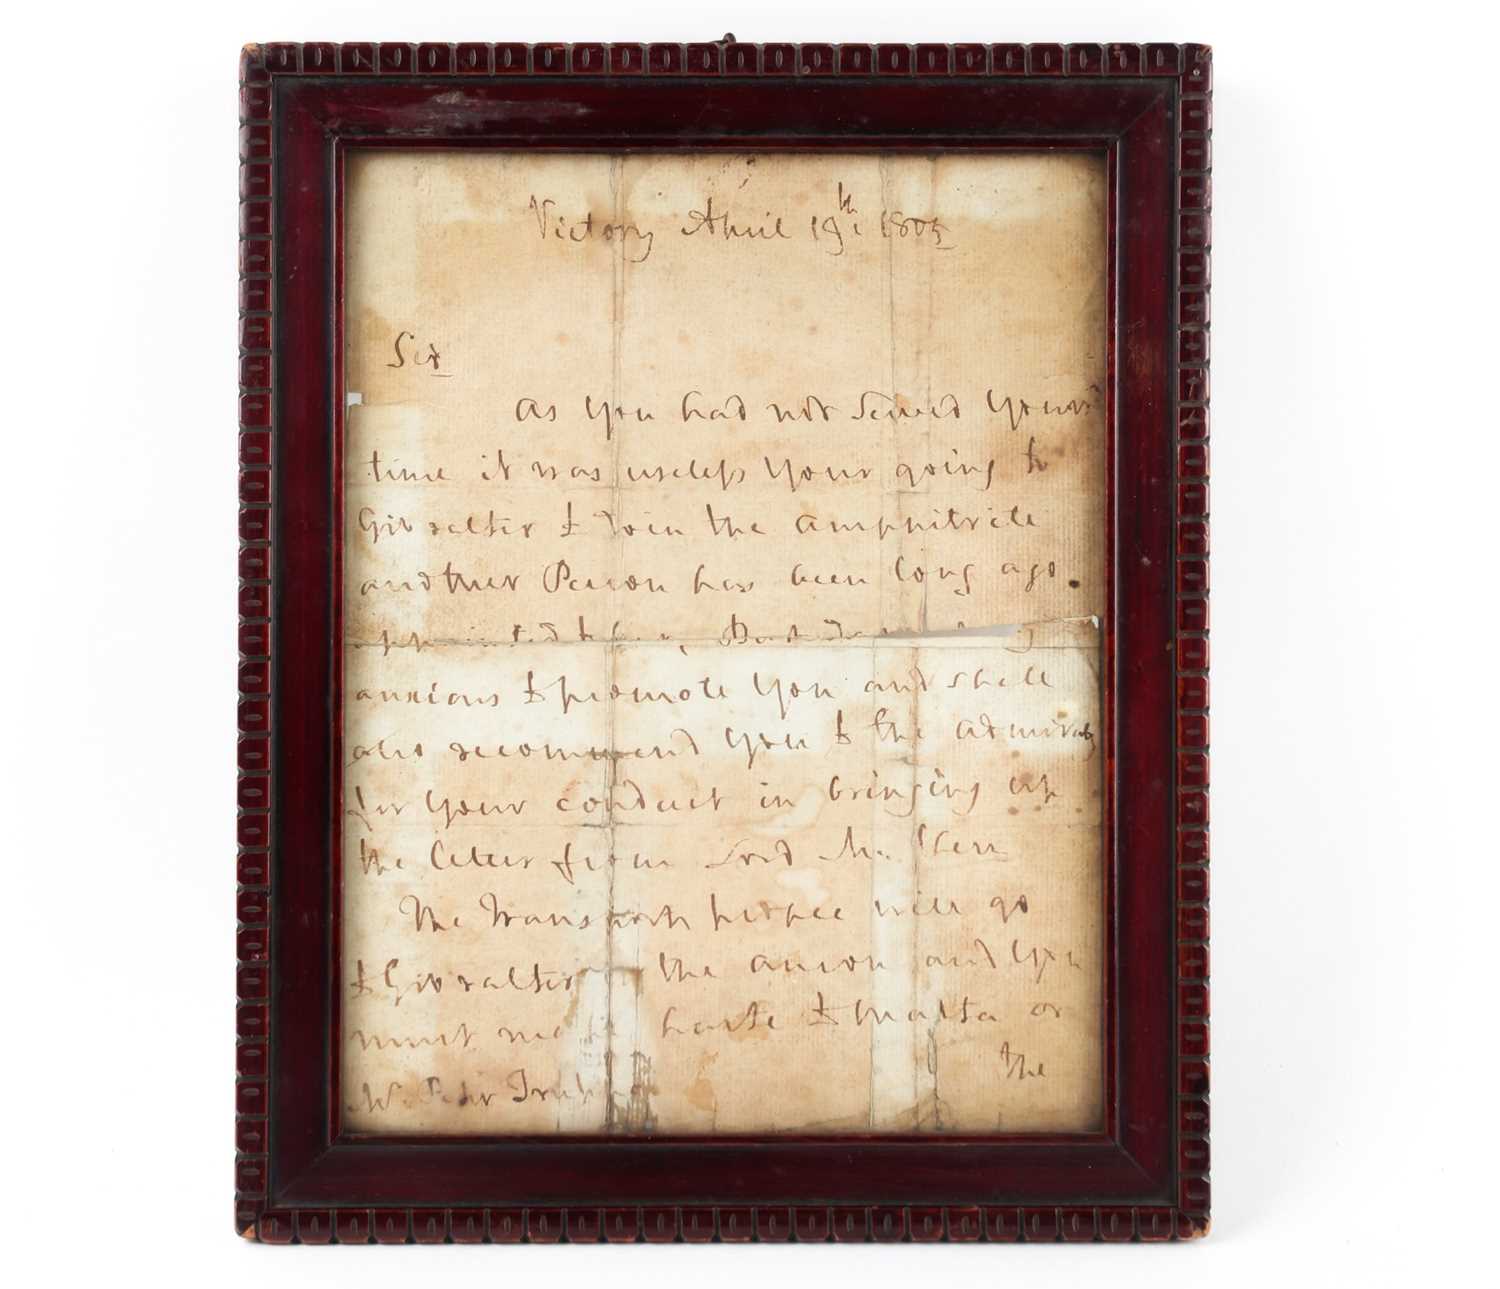 Victory April 19th 1805
Sir
As you had not served your
time it was useless your going to
Gibralter to Join the Amphitrite
another Person has been long ago
appointed to her, But I am
anxious to promote you and shall
also recommend you to the Admiralty
for your conduct in bringing up
the letters from Lord Mark Kerr
The Transports people will go
to Gibralter the and you
must make haste to Malta or
Mr. Peter
the